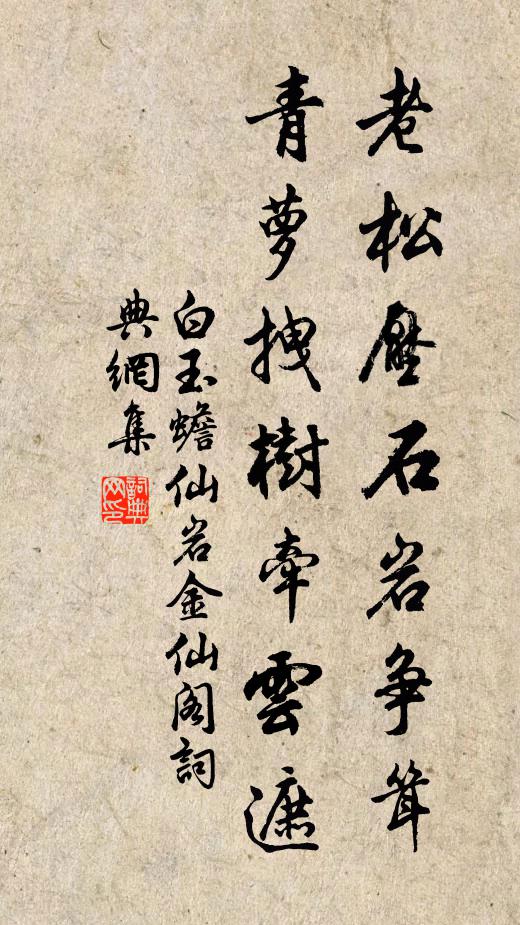 老松壓石岩争耸
青萝拽樹牵雲遮
白玉蟾仙岩金仙阁詞
典網集
詞典
网印